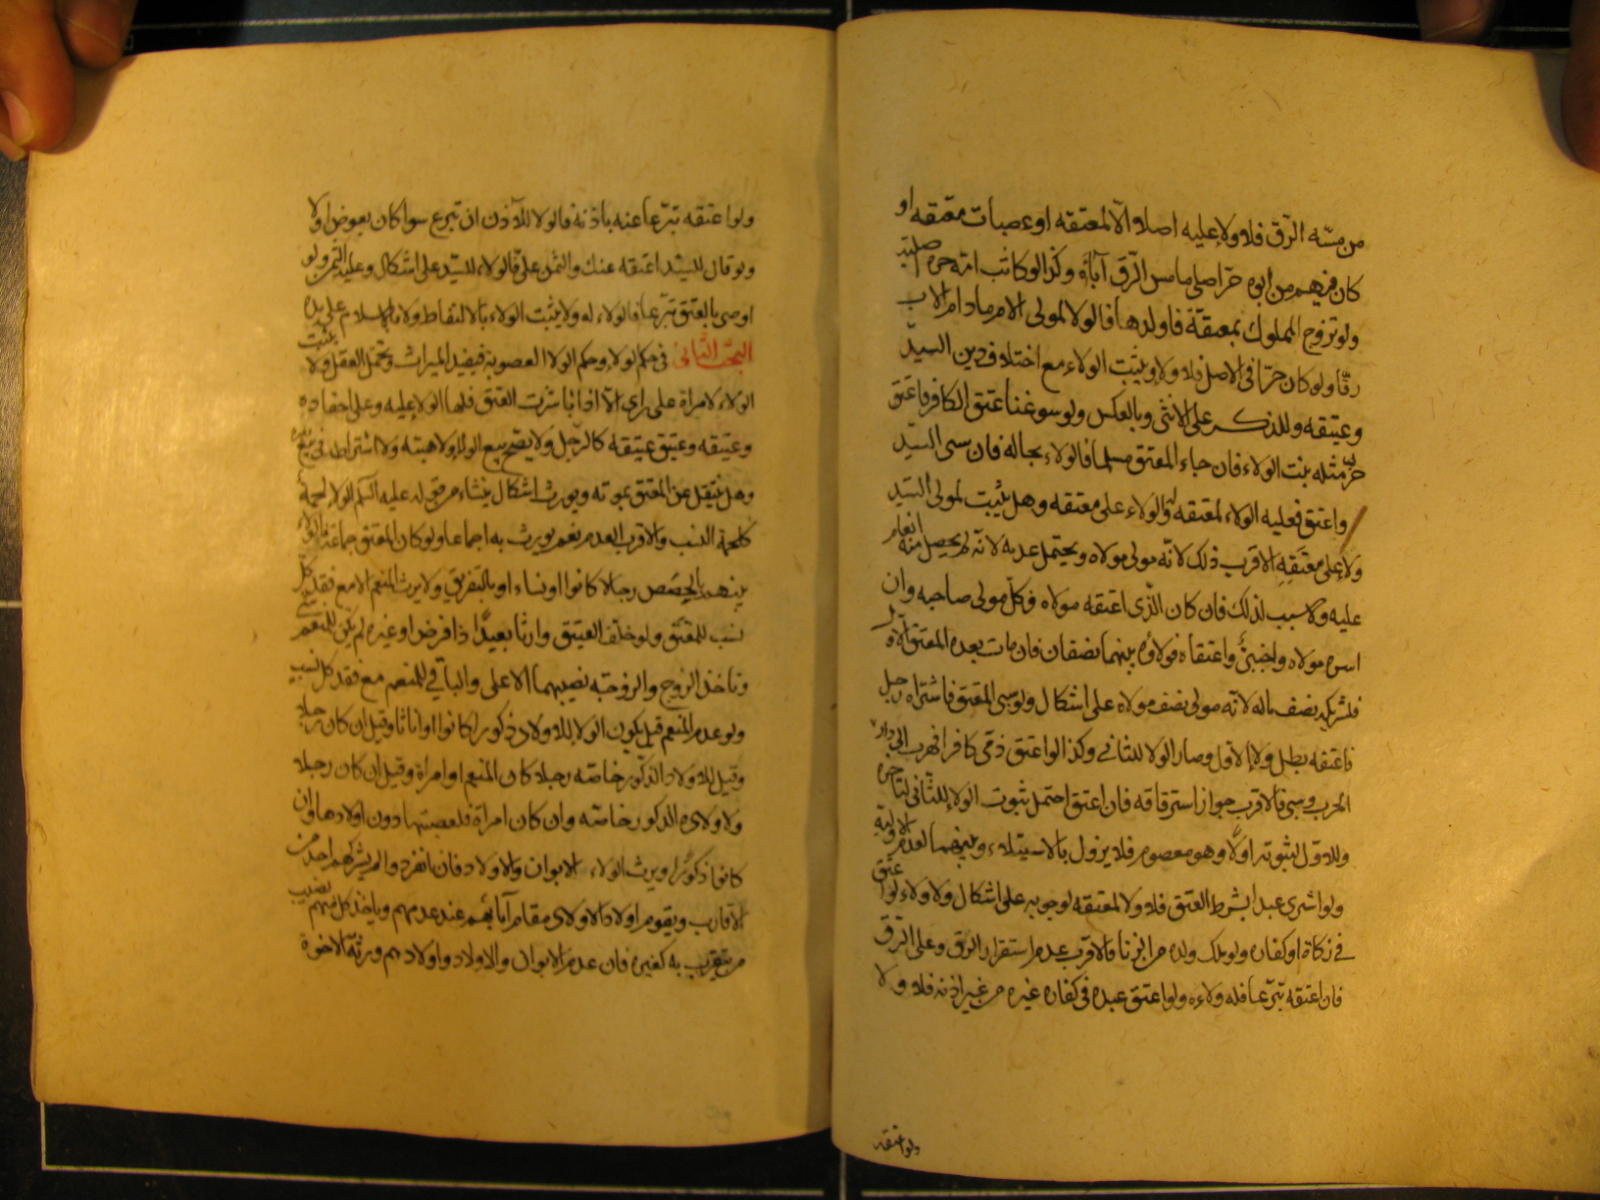 من مسّه الرّق فلا ولاء عليه اصلا والّا لمعتقه او عصبات معتقه او
كان فيهم من ابوه حرّ اصلي ما مس الرّق آباءه وكذا لو كانت امّه حرة اصلية
ولو تزوج المملوك بمعتقة فاولدها فالولاء لمولى الام ما دام الاب
رقّا ولو كان حرّا فى الاصل فلا ولاء ويثبت الولاء مع اختلاف دين السيّد
وعتيقه وللذكر على الانثى وبالعكس ولو سوغنا عتق الكافر فاعتق
حرّ مثله ثبت الولاء فان جاء المعتق مسلما فالولاء بحاله فان سبى السيّد
واعتق فعليه الولاء لمعتقه وله الولاء على معتقه وهل يثبت لمولى السيّد
ولاء على معتقه الاقرب ذلك لانّه مولى مولاه ويحتمل عدمه لانّه لم يحصل منه انعام
عليه ولا سبب لذلك فان كان الّذى اعتقه مولاه فكلّ مولى صاحبه وان
اسره مولاه واجنبىّ واعتقاه فولاؤه بينهما نصفان فان مات بعده المعتق الاول
فلشريكه نصف ماله لانّه مولى نصف مولاه على اشكال ولو سبى المعتق فاشتراه رجل
فاعتقه بطل ولاء الاول وصار الولاء للثانى وكذا لو اعتق ذمّى كافرا فهرب الى دار
الحرب وسبى فالاقرب جواز استرقاقه فان اعتق احتمل ثبوت الولاء للثّانى لتاخره
وللاوّل لثبوته اوّلا وهو معصوم فلا يزول بالاستيلاء وبينهما لعدم الاولوية
ولو اشترى عبدا بشرط العتق فلا ولاء لمعتقه لوجوبه على اشكال ولا ولاء لو اعتق
فى زكاة او كفارة ولو ملك ولده من الزنا فالاقرب عدم استقرار الرق وعلى الرّق
فان اعتقه تبرّعا فله ولاءه ولو اعتق عبده فى كفارة غيره من غير اذنه فلا ولاء
ولو اعتقه
ولو اعتقه تبرّعا عنه باذنه فالولاء للآذن ان تبرع سواء كان بعوض او لا
ولو قال للسيّد اعتقه عنك والثمن علىّ فالولاء للسيّد على اشكال وعليه الثمن ولو
اوصى بالعتق تبرّعا فالولاء له ولا يثبت الولاء بالالتقاط ولا بالاسلام على يده
البحث الثّانى فى حكم الولاء وحكم الولاء العصوبة فيفيد الميراث وتحمّل العقل ولا يثبت
الولاء لامراة على راى الّا اذا باشرت العتق فلها الولاء عليه وعلى احفاده
وعتيقه وعتيق عتيقه كالرّجل ولا يصّح بيع الولاء ولا هبته ولا اشتراطه فى بيع
وهل ينتقل عن المعتق بموته ويورث اشكال ينشاء من قوله عليه السّلم الولاء لحمة
كلحمة النسب والاقرب العدم نعم يورث به اجماعا ولو كان المعتق جماعة فالولاء
بينهم بالحصص رجالا كانوا او نساء او بالتفريق ولا يرث المنعم الا مع فقد كلّ
نسب للمعتق ولو خلّف العتيق وارثا بعيدا ذا فرض او غيره لم يكن للمنعم شئ
وياخذ الزوج والزوجة نصيبهما الاعلى والباقى للمنعم مع فقد كل نسيب
ولو عدم المنعم قيل يكون الولاء للاولاد ذكورا كانوا او اناثا وقيل ان كان رجلا
وقيل للاولاد الذّكور خاصّه رجلا كان المنعم او امراة وقيل ان كان رجلا
ولاولاده الذكور خاصّه وان كان امراة فلعصبتها دون اولادها وان
كانوا ذكورا ويرث الولاء الابوان والاولاد فان انفردوا لم يشركهم احد من
الاقارب ويقوم اولاد الاولاد مقام آبائهم عند عدمهم وياخذ كل منهم نصيب
من يتقرب به كغيره فان عدم الابوان والاولاد واولادهم ورثه الاخوة